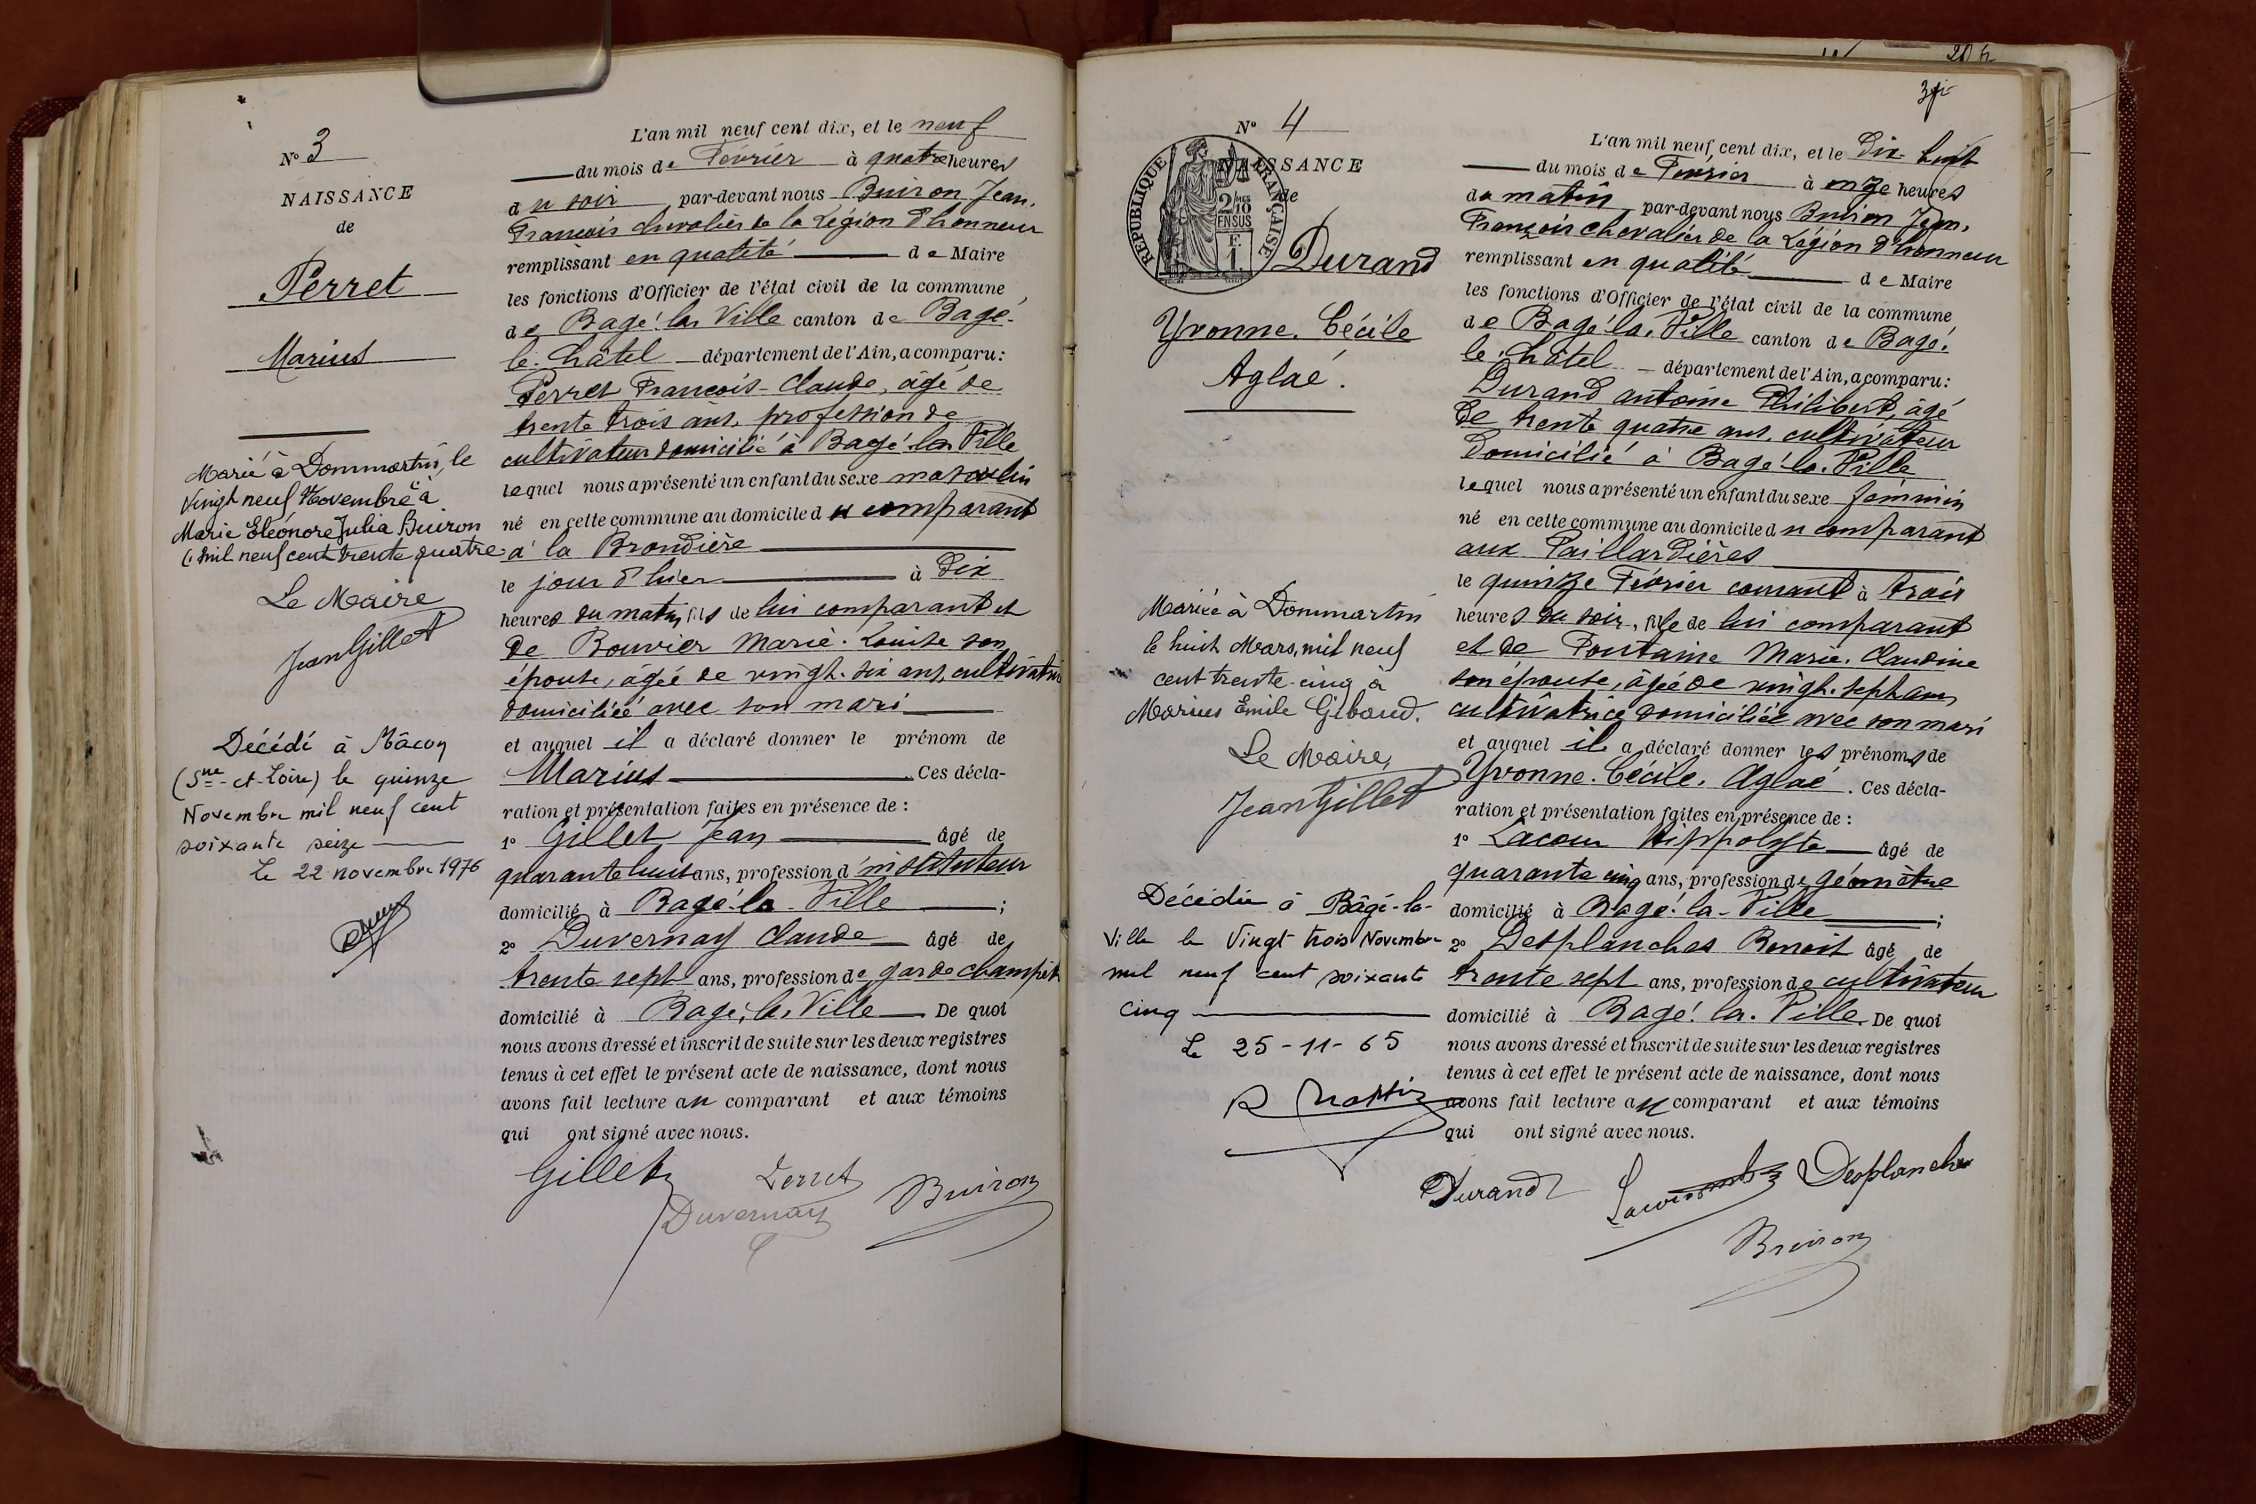 N° 3
NAISSANCE
de
Perret
Marius
Marié à Dommartin, le
vingt neuf Novembre à
Marie Eléonore Julia Buiron
(mil neuf cent trente quatre
Le Maire
Jean Gillet
Décédé à Mâcon
(Sne-et-Loire) le quinze
Novembre mil neuf cent
soixante seize
Le 22 novembre 1976
L'an mil neuf cent dix, et le neuf
du mois de Février à quatre heures
du soir par-devant nous Buiron Jean.
François chevalier de la Légion d'honneur
remplissant en qualité de Maire
les fonctions d'Officier de l'état civil de la commune
de Bagé-la-Ville canton de Bagé-
le-Châtel département de l'Ain, a comparu:
Perret François-Claude, âgé de
trente trois ans, profession de
cultivateur domicilié à Bagé-la-Ville
lequel nous a présenté un enfant du sexe masculin
né en cette commune au domicile du comparant
à la Brondière
le jour d'hier à dix
heures du matin, fils de lui comparant et
de Bouvier Marie-Louise son
épouse, âgée de vingt-six ans, cultivatrice
domiciliée avec son mari
et auquel il a déclaré donner le prénom de
Marius Ces décla-
ration et présentation faites en présence de :
1° Gillet Jean âgé de
quarante huit ans, profession d'instituteur
domicilié à Bagé-la-Ville ;
2° Duvernay Claude âgé de
trente sept ans, profession de garde champêt
domicilié à Bagé-la-Ville De quoi
nous avons dressé et inscrit de suite sur les deux registres
tenus à cet effet le présent acte de naissance, dont nous
avons fait lecture au comparant et aux témoins
qui ont signé avec nous.
Gillet Perret
Duvernay Buiron
N° 4
NAISSANCE
de
REPUBLIQUE FRANÇAISE
2/10
EN SUS
F.
1.
Durand
Yvonne. Cécile
Aglaé.
Mariée à Dommartin
le huit Mars, mil neuf
cent trente-cinq à
Marius Emile Gibaud.
Le Maire,
Jean Gillet
Décédée à Bâgé-la-
Ville le Vingt trois Novembre
mil neuf cent soixante
cinq
Le 25-11-65
L'an mil neuf cent dix, et le dix-huit
du mois de Février à onze heures
du matin par-devant nous Buiron Jean.
François chevalier de la Légion d'honneur
remplissant en qualité de Maire
les fonctions d'Officier de l'état civil de la commune
de Bagé-la-Ville canton de Bagé-
le-Châtel département de l'Ain, a comparu:
Durand Antoine Philibert, âgé
de trente quatre ans, cultivateur
domicilié à Bagé-la-Ville
lequel nous a présenté un enfant du sexe féminin
né en cette commune au domicile du comparant
aux Paillardières
le quinze Février courant à trois
heures du soir, fille de lui comparant
et de Fontaine Marie. Claudine
son épouse, âgée de vingt-sept ans,
cultivatrice domiciliée avec son mari
et auquel il a déclaré donner les prénoms de
Yvonne. Cécile. Aglaé. Ces décla-
ration et présentation faites en présence de :
1° Lacour Hippolyte âgé de
quarante cinq ans, profession de géomètre
domicilié à Bagé-la-Ville ;
2° Desplanches Benoit âgé de
trente sept ans, profession de cultivateur
domicilié à Bagé-la-Ville. De quoi
nous avons dressé et inscrit de suite sur les deux registres
tenus à cet effet le présent acte de naissance, dont nous
avons fait lecture au comparant et aux témoins
qui ont signé avec nous.
Durand Desplanches
Buiron